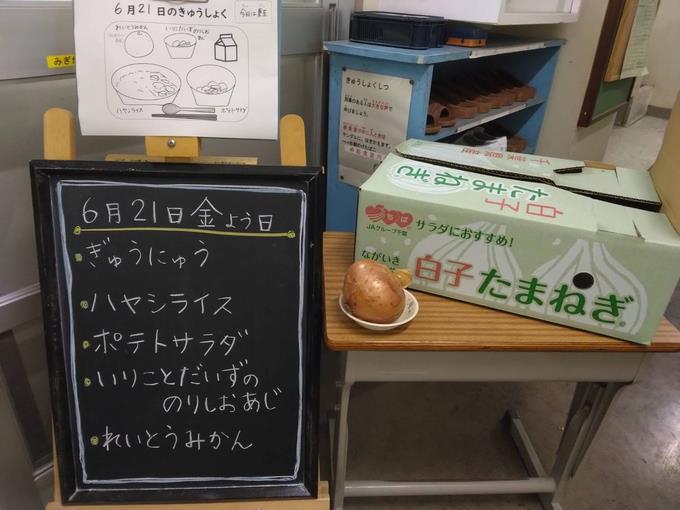 6月21日のきゅうしょく
れいとうみかん
ハヤシライス
ポテトサラダ
みぎが
きゅうしょくしつ
6月21日金よう日
ぎゅうにゅう
ハヤシライス
ポテトサラダ
いりことだいずの
のりしおあじ
れいとうみかん
白子
たまねぎ
ちば
JAグループ千葉
サラダにおすすめ!
ながいき
白子たまねぎ